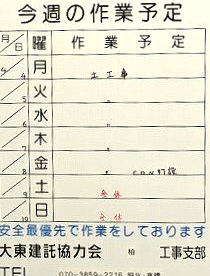 今週の作業予定
月 日 曜 作業予定
4/4 月 土工事
5 火 〃
6 水 〃
7 木 〃
8 金 〃 CON打設
9 土 全休
10 日 全休
安全最優先で作業をしております
大東建託協力会 柏 工事支部
TEL 070-3859-2216